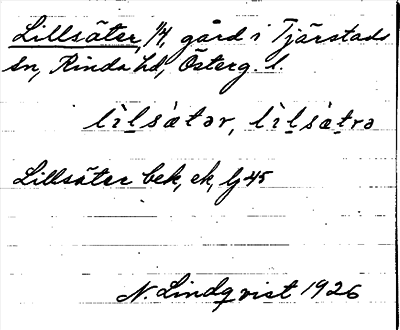 Lillsäter, 1/4, gård i Tjärstads
sn, Kinda hd, Österg. l.
lìlsàtər, lìlsàtrə
Lillsäter bek, ek, lj 45
N. Lindqvist 1926